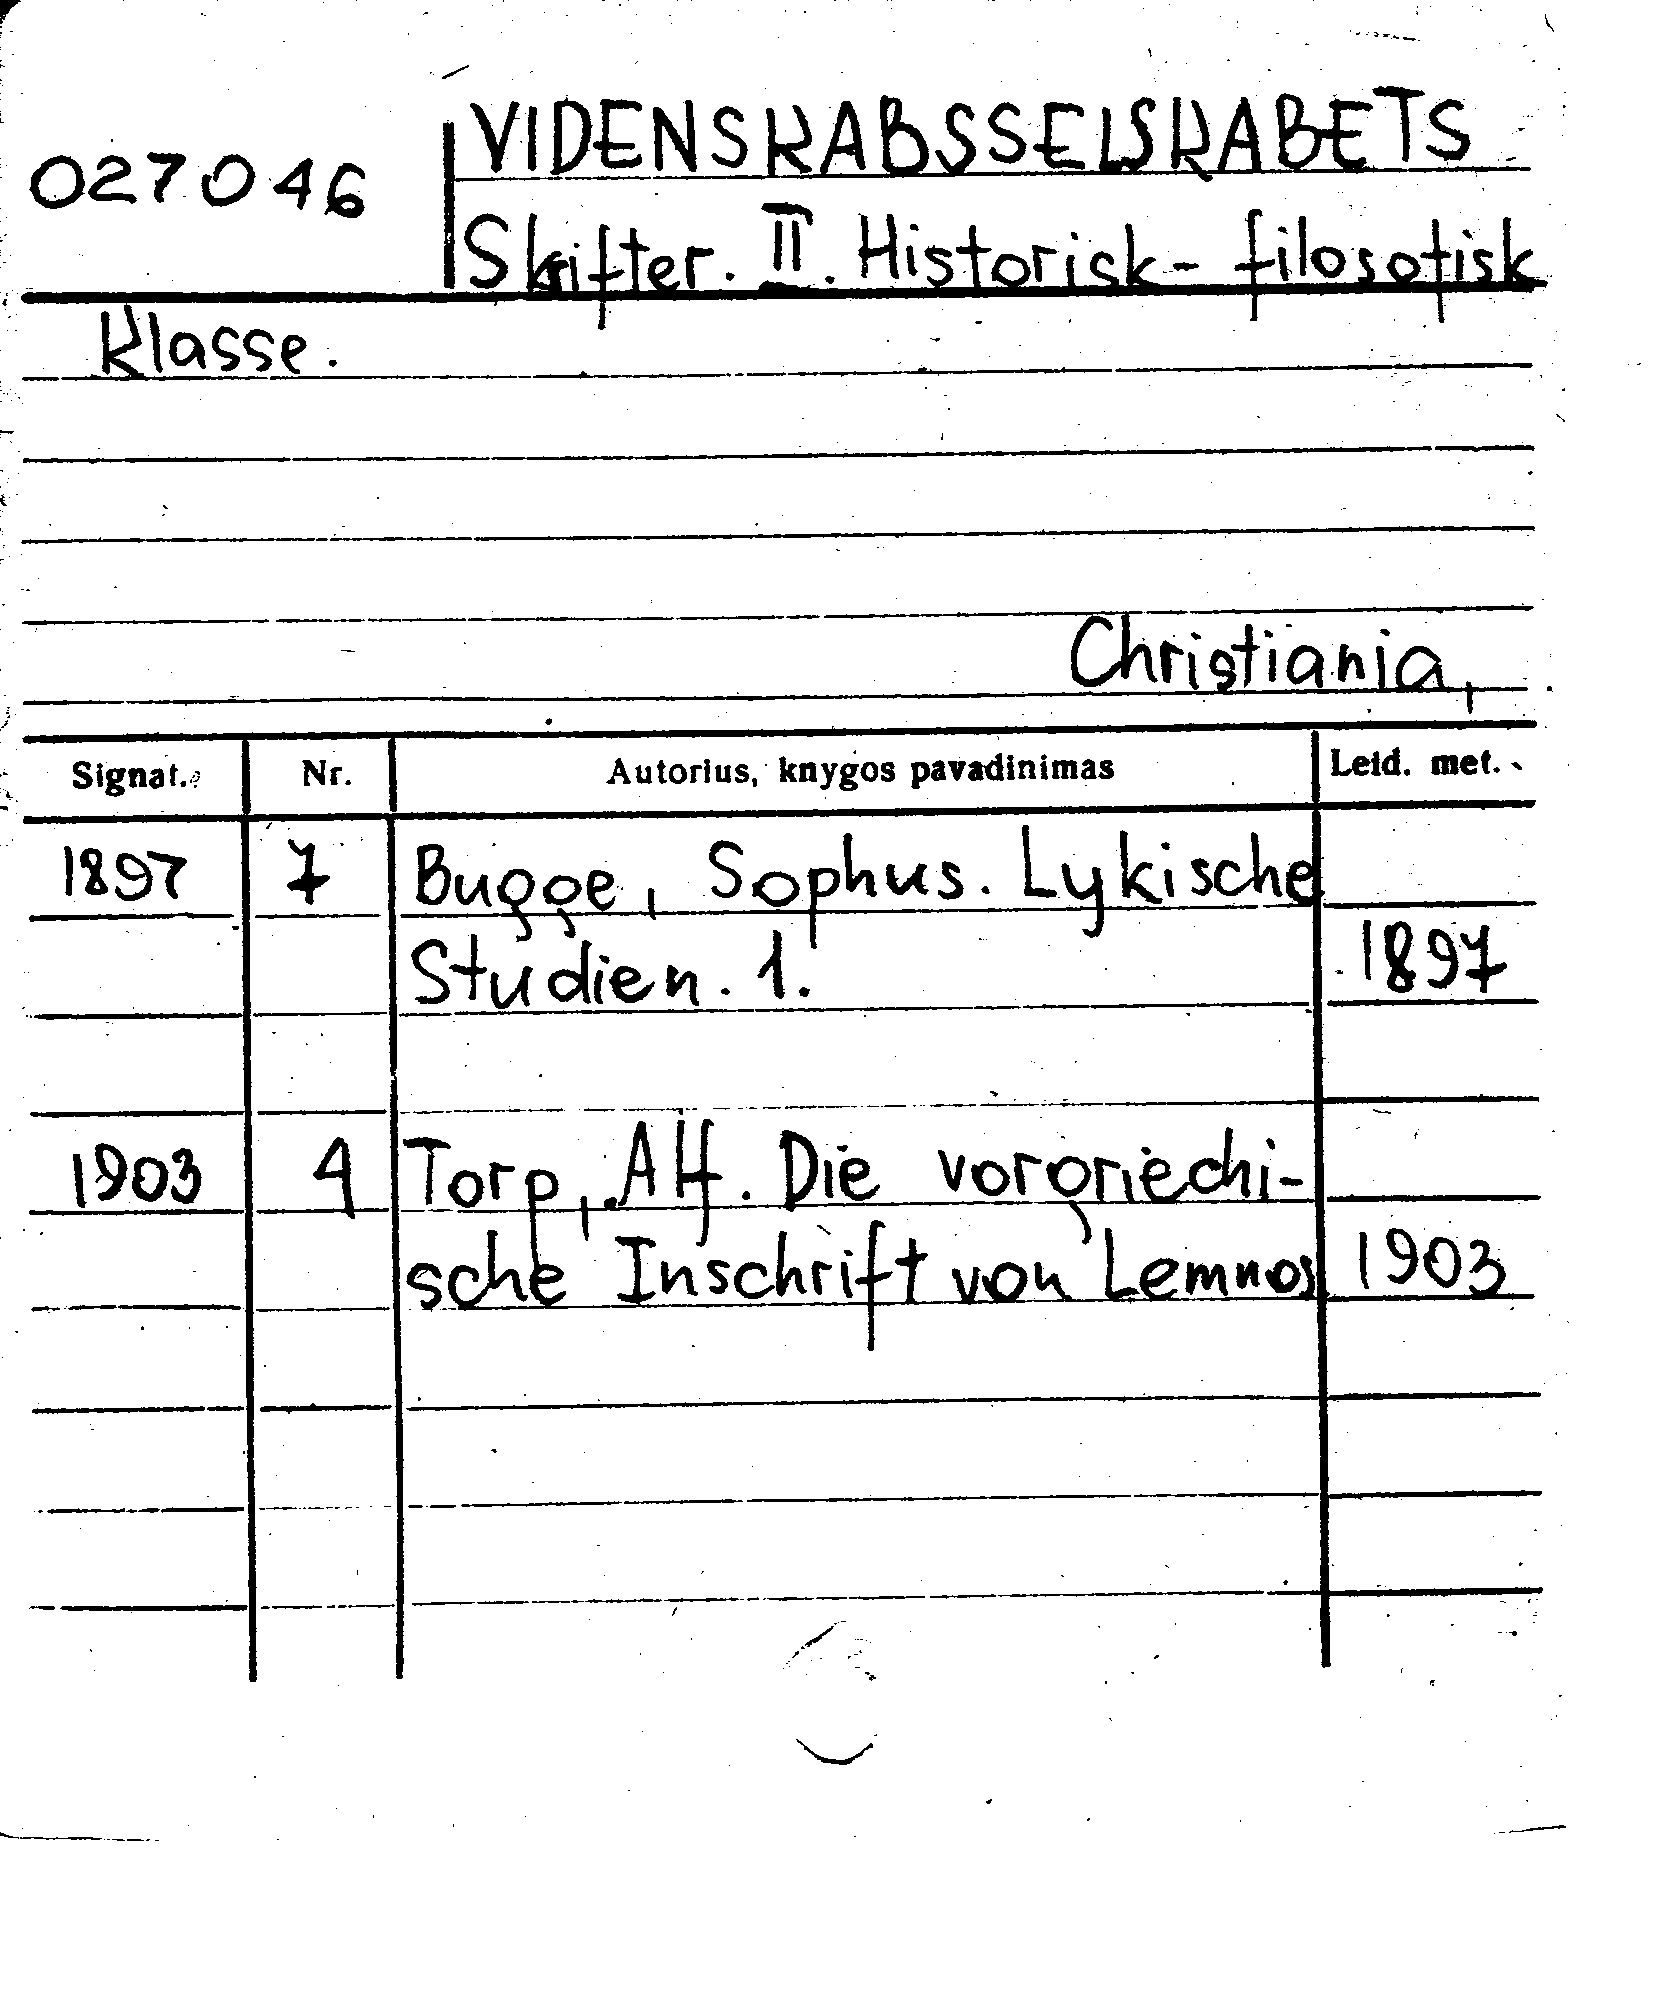 027046
VIDENSKABSSELSKABETS
Skrifter. II. Historisk-filosofisk
Klasse.
Christiania,
Signat. Nr. Autorius, knygos pavadinimas Leid. met.
1897 7 Bugge, Sophus. Lykische
Studien. 1. 1897
1903 4 Torp, Alf. Die vorgriechi-
sche Inschrift von Lemnos 1903